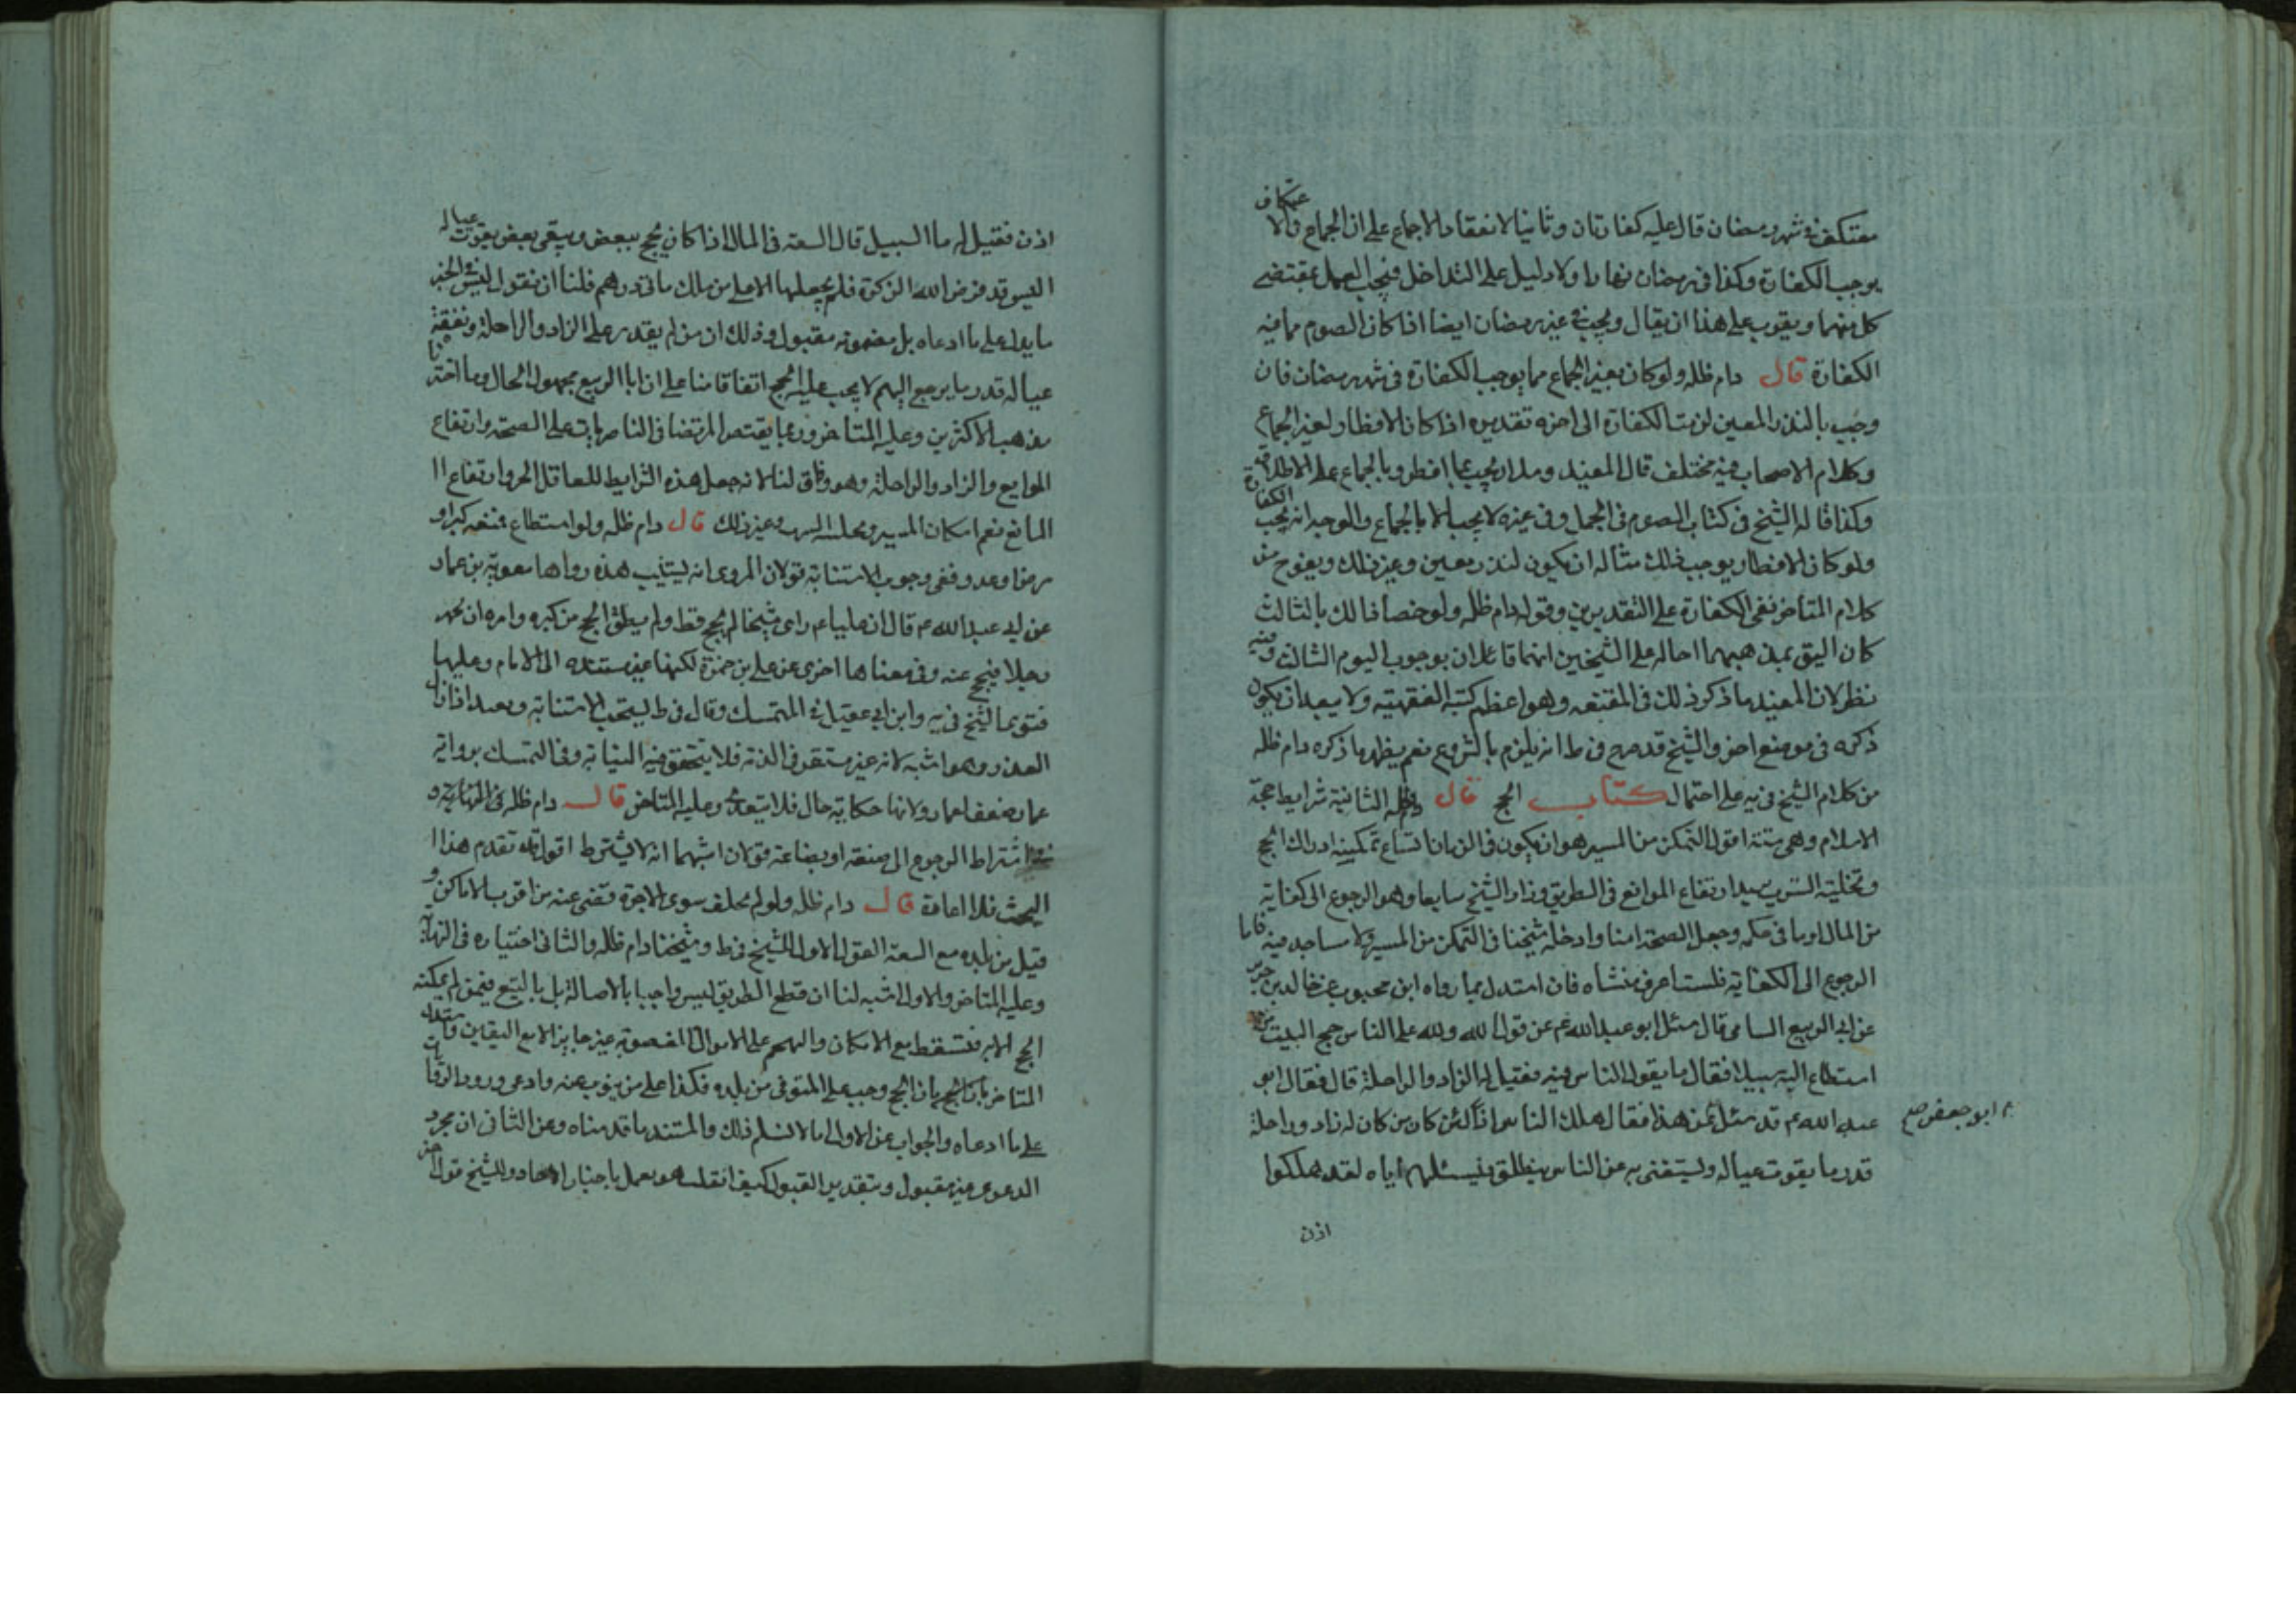 معتكف في شهر رمضان قال عليه كفارتان وثانيا لانعقاد الاجماع على ان الجماع في الاعتكاف
يوجب الكفارة وكذا في رمضان نهارا ولا دليل على التداخل فيجب العمل بمقتضى
كل منهما ويقوى على هذا ان يقال ويجب في غير رمضان ايضا اذا كان الصوم مما فيه
الكفارة قال دام ظله ولو كان بغير الجماع مما يوجب الكفارة في شهر رمضان فان
وجب بالنذر المعين لزمت الكفارة الى اخره تقديره اذا كان الافطار لغير الجماع
وكلام الاصحاب فيه مختلف قال المفيد وسلار يجب بما افطر وبالجماع على الاطلاق فيه
وكذا قاله الشيخ في كتاب الصوم في الجمل وفي غيره لا يجب الا بالجماع والوجه انه يجب الكفارة
ولو كان الافطار يوجب ذلك مثاله ان يكون لنذر معين وغير ذلك ويفوح من
كلام المتاخر نفي الكفارة على التقديرين وقوله دام ظله ولو خصا ذلك بالثالث
كان اليق بمذهبهما احاله على الشيخين انهما قائلان بوجوب اليوم الثالث وفيه
نظر لان المفيد ما ذكر ذلك في المقنعه وهو اعظم كتبه الفقهية ولا يبعد ان يكون
ذكره في موضع اخر والشيخ قد صرح في ط انه يلزم بالشروع نعم يظهر ما ذكره دام ظله
من كلام الشيخ في يه على احتمال كتاب الحج قال دام ظله الثانية شرايط حجة
الاسلام وهي ستة اقول التمكن من المسير هو ان يكون في الزمان اتساع تمكينه ادراك الحج
وتخلية السرب يريد ارتفاع الموانع في الطريق وزاد الشيخ سابعا وهو الرجوع الى كفاية
من المال او ما في حكمه وجعل الصحة امنا وادخله شيخنا في التمكن من المسير ولا مساجد فيه فاما
الرجوع الى الكفاية فلست اعرف منشاه فان استدل بما رواه ابن محبوب عن خالد بن جرير
عن ابي الربيع السامي قال سئل ابو عبد الله عم عن قول الله ولله على الناس حج البيت من
استطاع اليه سبيلا فقال ما يقول الناس فيه فقيل له الزاد والراحلة قال فقال ابو
عبد الله عم قد سئل عن هذا فقال هلك الناس اذا لئن كان من كان له زاد وراحلة
ابو جعفر صح
قدر ما يقوت عياله ويستغني به عن الناس ينطلق فيسئلهم اياه لقد هلكوا
اذن
اذن فقيل له ما السبيل قال السعة في المال اذا كان يحج ببعض ويبقى بعض يقوت عياله
اليس قد فرض الله الزكوة فلم يجعلها الا على من ملك ماتى درهم قلنا ان نقول ليس في الخبر
ما يدل على ما ادعاه بل مضمونه مقبول وذلك ان من لم يقدر على الزاد والراحلة ونفقة
عياله قدر ما يرجع اليهم لا يجب عليه الحج اتفاقا منا على ان ابا الربيع مجهول الحال وما اخترنا
مذهب الاكثرين وعليه المتاخر وربما يقتصر المرتضى في الناصريات على الصحة وارتفاع
الموانع والزاد والراحلة وهو وفاق لنا لانه جعل هذه الشرايط للعاقل الحر وارتفاع ا
المانع نعم امكان المسير وتخلية السرب وغير ذلك قال دام ظله ولو استطاع فمنعه كبر او
مرض او عدو ففي وجوب الاستنابة قولان المروى انه يستنيب هذه رواها معوية بن عمار
عن ابي عبد الله عم قال ان عليا عم راى شيخا لم يحج قط ولم يطق الحج من كبره وامره ان يجهز
رجلا فيحج عنه وفي معناها اخرى عن علي بن حمزة لكنها غير مستنده الى الامام وعليها
فتوى الشيخ في يه وابن ابي عقيل في المتمسك وقال في ط يستحب الاستنابة وبعد اذا زال
العذر وهو اشبه لانه غير مستقر في الذمة فلا يتحقق فيه النيابة وفي التمسك برواية
عمار ضعف لعمار ولانها حكاية حال فلا يتعدى وعليه المتاخر قال دام ظله في النهاية و
في اشتراط الرجوع الى صنعة او بضاعة قولان اشبهما انه لا يشترط اقول قد تقدم هذا ا
البحث فلا اعادة قال دام ظله ولو لم يخلف سوى الاجرة قضى عنه من اقرب الاماكن و
قيل من بلده مع السعة القول الاول للشيخ في ط وشيخنا دام ظله والثاني اختياره في النهاية
وعليه المتاخر والاول اشبه لنا ان قطع الطريق ليس واجبا بالاصالة بل بالتبع فيمن لم يمكنه
الحج الا به فتسقط مع الامكان والتهجم على الاموال المعصومة غير جايز الا مع اليقين واستدل
المتاخر بان الحج وجب على المتوفى من بلده فكذا على من ينوب عنه وادعى ورود الروايات
على ما ادعاه والجواب عن الاول انا لا نسلم ذلك والمستند ما قدمناه وعن الثاني ان مجرد
الدعوى غير مقبول وبتقدير القبول كيف انقلب هو يعمل باخبار الاحاد وللشيخ قول اخر